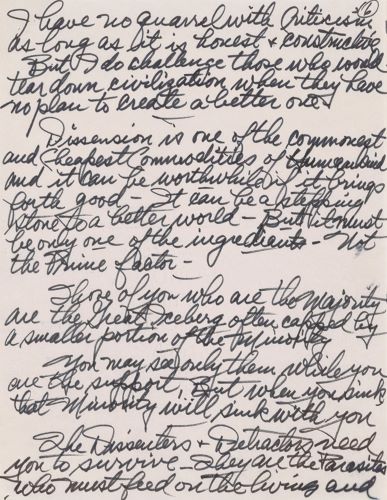 -6
I have no quarrel with Criticism
as long as it is honest + constructive
But I do challenge those who would
tear down civilization when they have
no plan to create a better one!
Dissension is one of the commonest
and cheapest Commodities of humankind
and it can be worthwhile if it brings
forth good - It can be a stepping
stone to a better world - But it must
be only one of the ingredients - Not
the Prime factor -
Those of you who are the Majority
are the Great Iceberg often capped by
a smaller portion of the Minority
You may see only them while you
are the support, But when you sink
that Minority will sink with you
The Dissenters + Detractors need
you to survive - They are the Parasites
who must feed on the living and